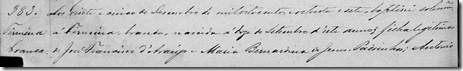 383. Aos vinte e cinco de Dezembro de mil oitocentos e oitenta e sete, baptizei solemne
Firmina a Firmina, branca, nascida a doze de Setembro d'este anno, filha legitima
branca de José Francisco d'Araujo e Maria Bernardina de Jesus. Padrinhos: Antonio